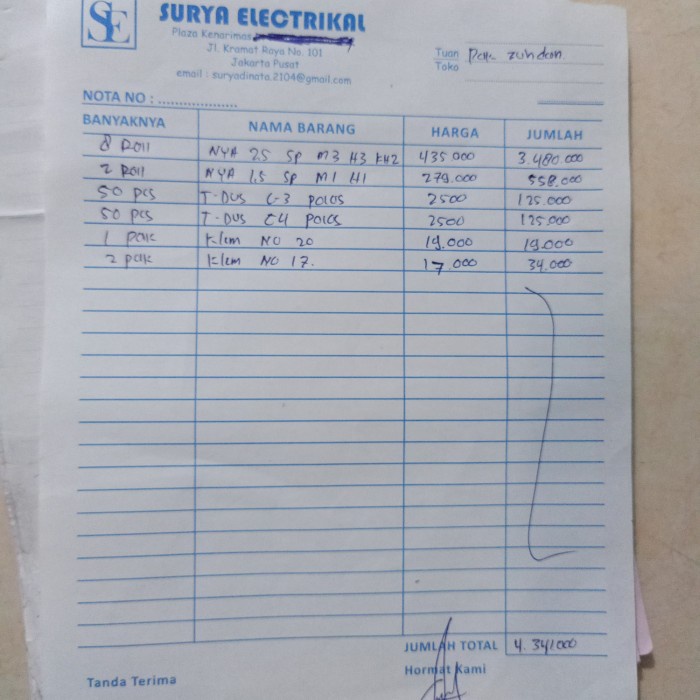 SE
SURYA ELECTRIKAL
Plaza Kenarimas
Jl. Kramat Raya No. 101
Jakarta Pusat
email : suryadinata.2104@gmail.com
Tuan Pak zuhdan
Toko
NOTA NO : ...................
BANYAKNYA NAMA BARANG HARGA JUMLAH
8 Roll NYA 2.5 SP M3 H3 KH2 435.000 3.480.000
2 Roll NYA 1.5 SP M1 H1 279.000 558.000
50 pcs T-DUS C-3 POLOS 2500 125.000
50 pcs T-DUS C4 POLOS 2500 125.000
1 pak Klem NO 20 19.000 19.000
2 pak Klem NO 17. 17.000 34.000
JUMLAH TOTAL 4.341000
Tanda Terima Hormat Kami